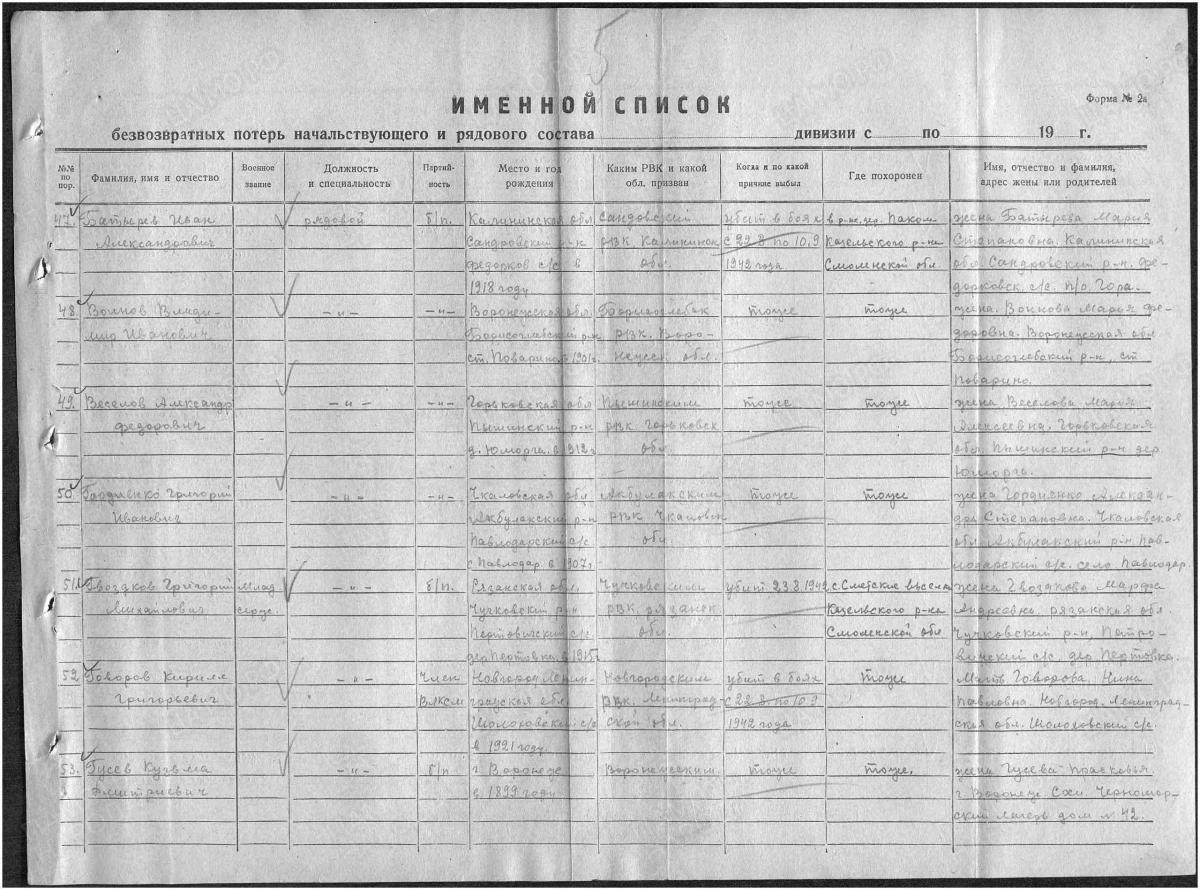 5
Форма № 2а
ИМЕННОЙ СПИСОК
безвозвратных потерь начальствующего и рядового состава дивизии с по 19 г.
№№ по пор. Фамилия, имя и отчество Военное звание Должность и специальность Партийность Место и год рождения Каким РВК и какой обл. призван Когда и по какой причине выбыл Где похоронен Имя, отчество и фамилия, адрес жены или родителей
47. Батырев Иван рядовой б/п. Калининская обл. Сандовский убит в боях в р-не дер. Паком жена Батырева Мария
Александрович Сандровский р-н РВК. Калининск с 22.8 по 10.9 Казельского р-на Степановна. Калининская
Федорков с/с в обл. 1942 года Смоленской обл. обл. Сандровский р-н. Фе-
1918 году дорковск. с/с. п/о. Гора.
48. Воинов Влади- -"- -"- Воронежская обл. Борисоглебск тоже тоже жена. Воинова Мария Фе-
мир Иванович Борисоглебский р-н РВК. Воро- доровна. Воронежская обл
ст. Поварино в 1901г. нежск. обл. Борисоглебский р-н, ст
Поварино.
49. Веселов Александр -"- -"- Горьковская обл Пыщинским тоже тоже жена Веселова Мария
Федорович Пыщинский р-н РВК Горьковск Алексеевна. Горьковская
д. Юморга. в 1912г обл. обл. Пыщинский р-н дер
Юморга.
50. Гордиенко Григорий -"- -"- Чкаловская обл Акбулакским тоже тоже жена Гордиенко Алексан-
Иванович Акбулакский р-н РВК Чкаловск дра Степановна. Чкаловская
Павлодарский с/с. обл. обл. Акбулакский р-н. Пав-
с. Павлодар. в 1907г. лодарский с/с. село Павлодар.
51. Гвоздков Григорий Млад -"- б/п. Рязанская обл. Чучковским убит 23.8.1942 с. Сметские выселк жена Гвоздкова Марфа
Михайлович серж. Чучковский р-н РВК. рязанск Казельского р-на Андреевна, рязанская обл.
с/с. обл. Смоленской обл Чучковский р-н,
дер. Пертовка. в 1915г с/с. дер Пертовка.
52 Говоров Кирилл -"- Член Новгород Ленин- Новгородским убит в боях тоже Мать Говорова, Нина
Григорьевич ВЛКСМ градская обл. РВК. Ленинград- с 22.8. по 10.9 Павловна. Новгород. Ленинград-
Шолоховский с/с ской обл. 1942 года ская обл. Шолоховский с/с.
в 1921 году.
53. Гусев Кузьма -"- б/п г. Воронеж Воронежским. тоже тоже. жена Гусева Прасковья
Дмитриевич в 1899 году г. Воронеж. Черномор-
ский дом № 42.